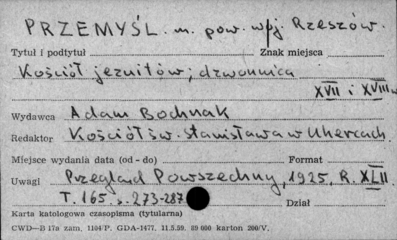 PRZEMYŚL. m. pow. woj. Rzeszów.
Tytuł i podtytuł Znak miejsca
Kościół jezuitów; dzwonnica
XVII i XVIII w
Wydawca Adam Bochnak
Redaktor Kościół św. Stanisława w Uhercach
Miejsce wydania data (od - do) Format
Uwagi Przegląd Powszechny, 1925, R. XLII.
T. 165. s. 273-287 Dział
Karta katologowa czasopisma (tytularna)
CWD—B 17a zam. 1104/P. GDA-1477. 11.5.59. 89 000 karton 200/V.